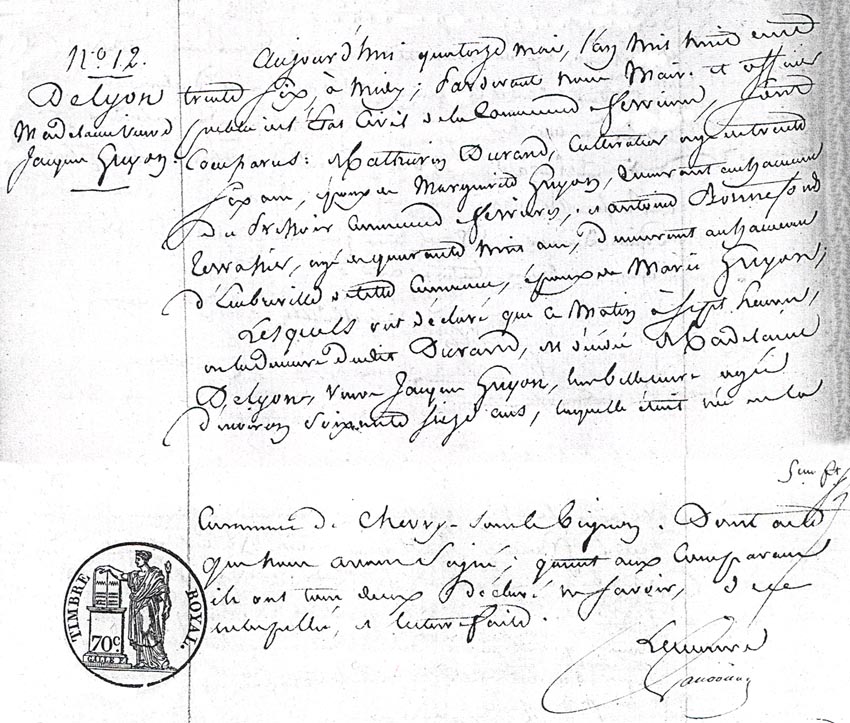 N.o 12.
Delyon
Madelaine veuve
Jacques Guyon.
Aujourd'hui quatorze mai, l'an mil huit cent
trente six, à midi; Pardevant nous Maire et officier
public de l'Etat Civil de la Commune de ferrieres, sont
Comparus: Mathurin Durand, Cultivateur agé de trente
six ans, époux de Marguerite Guyon, demeurant au hameau
du Pressoir Commune de ferrieres, et antoine Bonnefond
terrassier, agé de quarante huit ans, demeurant au hameau
d'Emberville de cette Commune, époux de Marie Guyon;
Lesquels ont déclaré que ce Matin à sept heures,
en la demeure dudit Durand, est décédée Madelaine
Delyon, veuve Jacques Guyon, leur belle mere agée
d'environ soixante seize ans, laquelle était née en la
Commune de Chevry-sous le bignon. Dont acte
que nous avons signé; quant aux Comparans
ils ont tous deux déclaré ne savoir, de ce
interpellés, et lecture faite.
Le maire
TIMBRE ROYAL.
70c